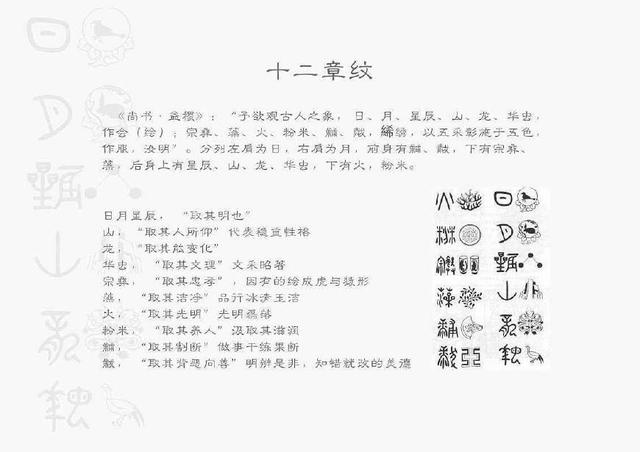 十二章纹
《尚书·益稷》：“予欲观古人之象，日、月、星辰、山、龙、华虫，
作会（绘）；宗彝、藻、火、粉米、黼、黻，絺绣，以五采彰施于五色，
作服，汝明”。分列左肩为日，右肩为月，前身有黼、黻，下有宗彝、
藻，后身上有星辰、山、龙、华虫，下有火，粉米。
日月星辰，“取其明也”
山，“取其人所仰”代表稳重性格
龙，“取其能变化”
华虫，“取其文理”文采昭著
宗彝，“取其忠孝”，因有的绘成虎与猿形
藻，“取其洁净”品行冰清玉洁
火，“取其光明”光明磊落
粉米，“取其养人”汲取其滋润
黼，“取其割断”做事干练果断
黻，“取其背恶向善”明辨是非，知错就改的美德